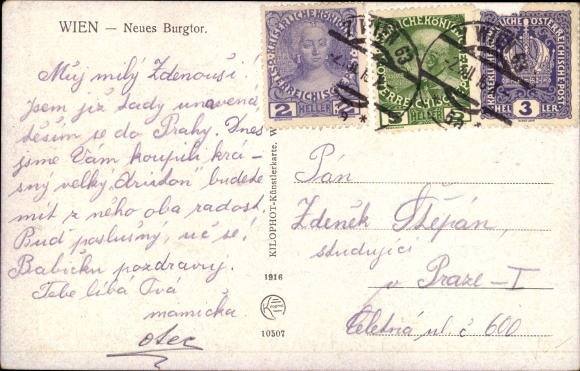 WIEN — Neues Burgtor.
Můj milý Zdenouši!
Jsem již tady unavená,
těším se do Prahy. Dnes
jsme Vám koupili krá-
sný velký budete
mít z něho oba radost.
Buď poslušný, uč se!
Babičku pozdravuj.
Tebe líbá Tvá
mamička
otec
KILOPHOT-Künstlerkarte. W
1916
10507
2 HELLER 2
5 HELLER
HELLER 3 LER
1 WIEN 63
1 WIEN 63
Pán
Zdeněk Štěpán,
studující
v Praze-I
Celetná ul. č 600